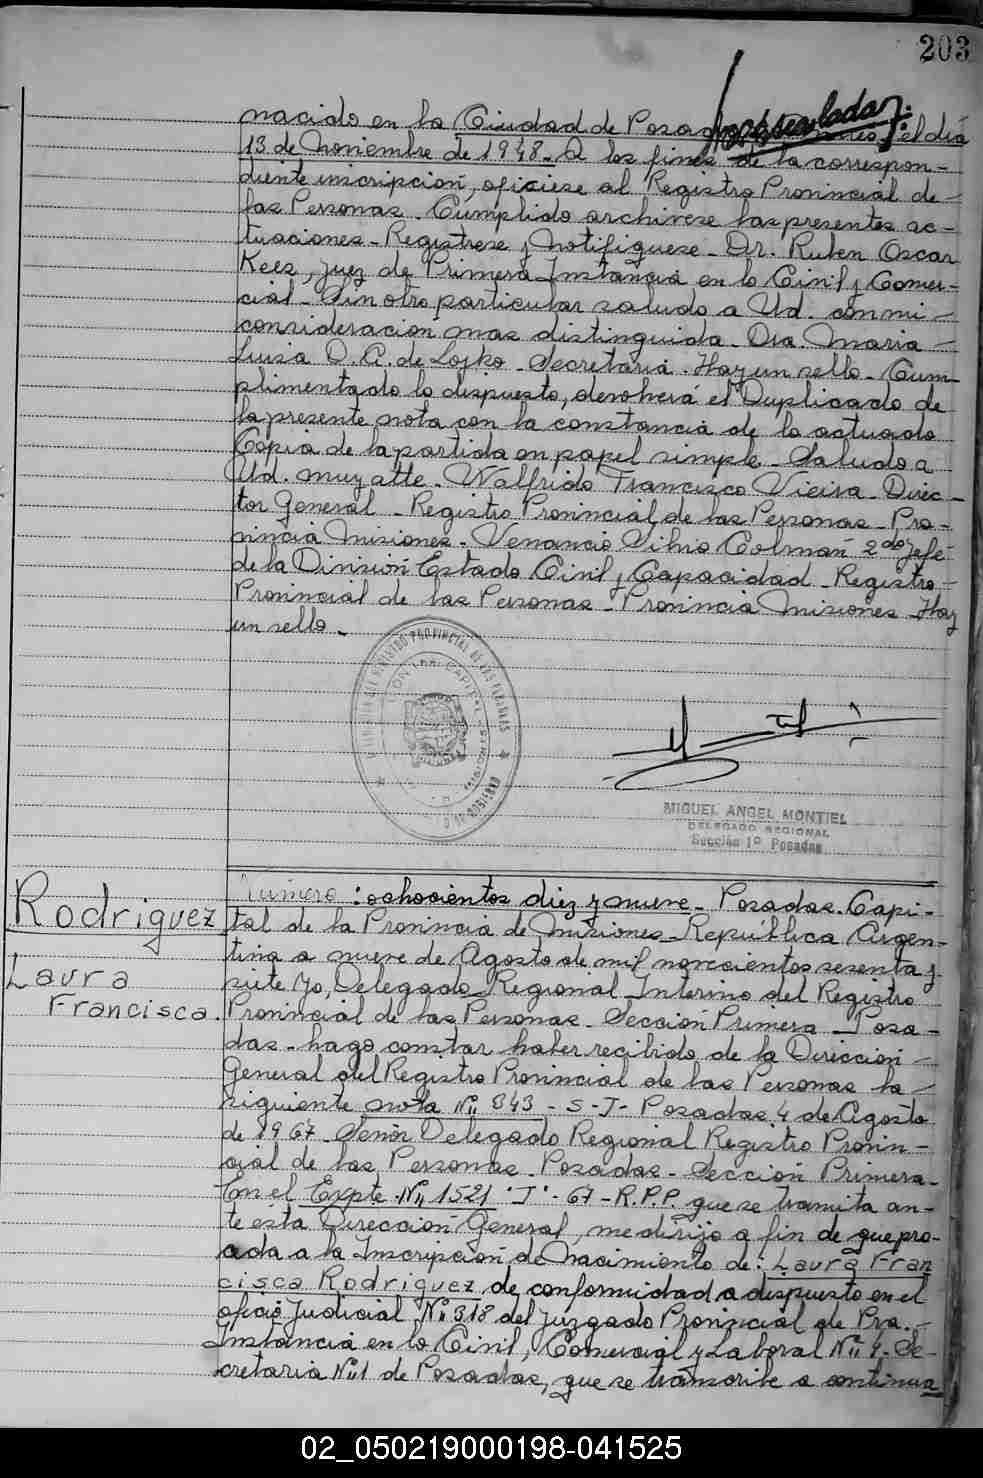 203
nacido en la Ciudad de Posadas Misiones, el día
13 de Noviembre de 1948. A los fines de la correspon-
diente inscripción, ofíciese al Registro Provincial de
las Personas. Cumplido archívese las presentes ac-
tuaciones - Registrese y notifíquese - Dr. Ruben Oscar
Kees, Juez de Primera Instancia en lo Civil y Comer-
cial - Sin otro particular saludo a Ud. con mi
consideración mas distinguida. Dra. Maria
Luisa D. A. de Lojko - Secretaria. Hay un sello - Cum-
plimentado lo dispuesto, devolverá el Duplicado de
la presente nota con la constancia de lo actuado
Copia de la partida en papel simple - Saludo a
Ud. muy atte - Walfrido Francisco Vieira - Direc-
tor General - Registro Provincial de las Personas - Pro-
vincia Misiones - Venancio Silvio Colman 2do Jefe
de la División Estado Civil y Capacidad - Registro
Provincial de las Personas - Provincia Misiones - Hay
un sello -
REGISTRO PROVINCIAL DE LAS PERSONAS
MIGUEL ANGEL MONTIEL
DELEGADO REGIONAL
Sección 1º Posadas
Rodriguez
Laura
Francisca.
Número: ochocientos diez y nueve - Posadas. Capi-
tal de la Provincia de Misiones - República Argen-
tina a nueve de Agosto de mil novecientos sesenta y
siete Yo, Delegado Regional Interino del Registro
Provincial de las Personas - Sección Primera - Posa-
das - hago constar haber recibido de la Dirección
General del Registro Provincial de las Personas la
siguiente nota Nº 343 - S-J- Posadas 4 de Agosto
de 1967 - Señor Delegado Regional Registro Provin-
cial de las Personas - Posadas - Sección Primera-
En el Expte. Nº 1521 "J" - 67 - R.P.P. que se tramita an-
te esta Dirección General, me dirijo a fin de que pro-
ceda a la Inscripción de Nacimiento de: Laura Fran
cisca Rodriguez de conformidad a dispuesto en el
oficio Judicial Nº 318 del Juzgado Provincial de Pra.-
Instancia en lo Civil, Comercial y Laboral Nº 4 - Se-
cretaria Nº 1 de Posadas, que se transcribe a continua
02_050219000198-041525